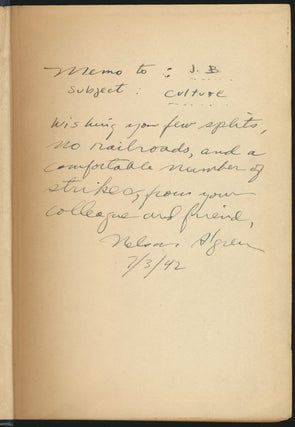 Memo to : J. B
Subject : Culture
Wishing you few splits,
no railroads, and a
comfortable number of
strikes, from your
colleague and friend,
Nelson Algren
7/3/42